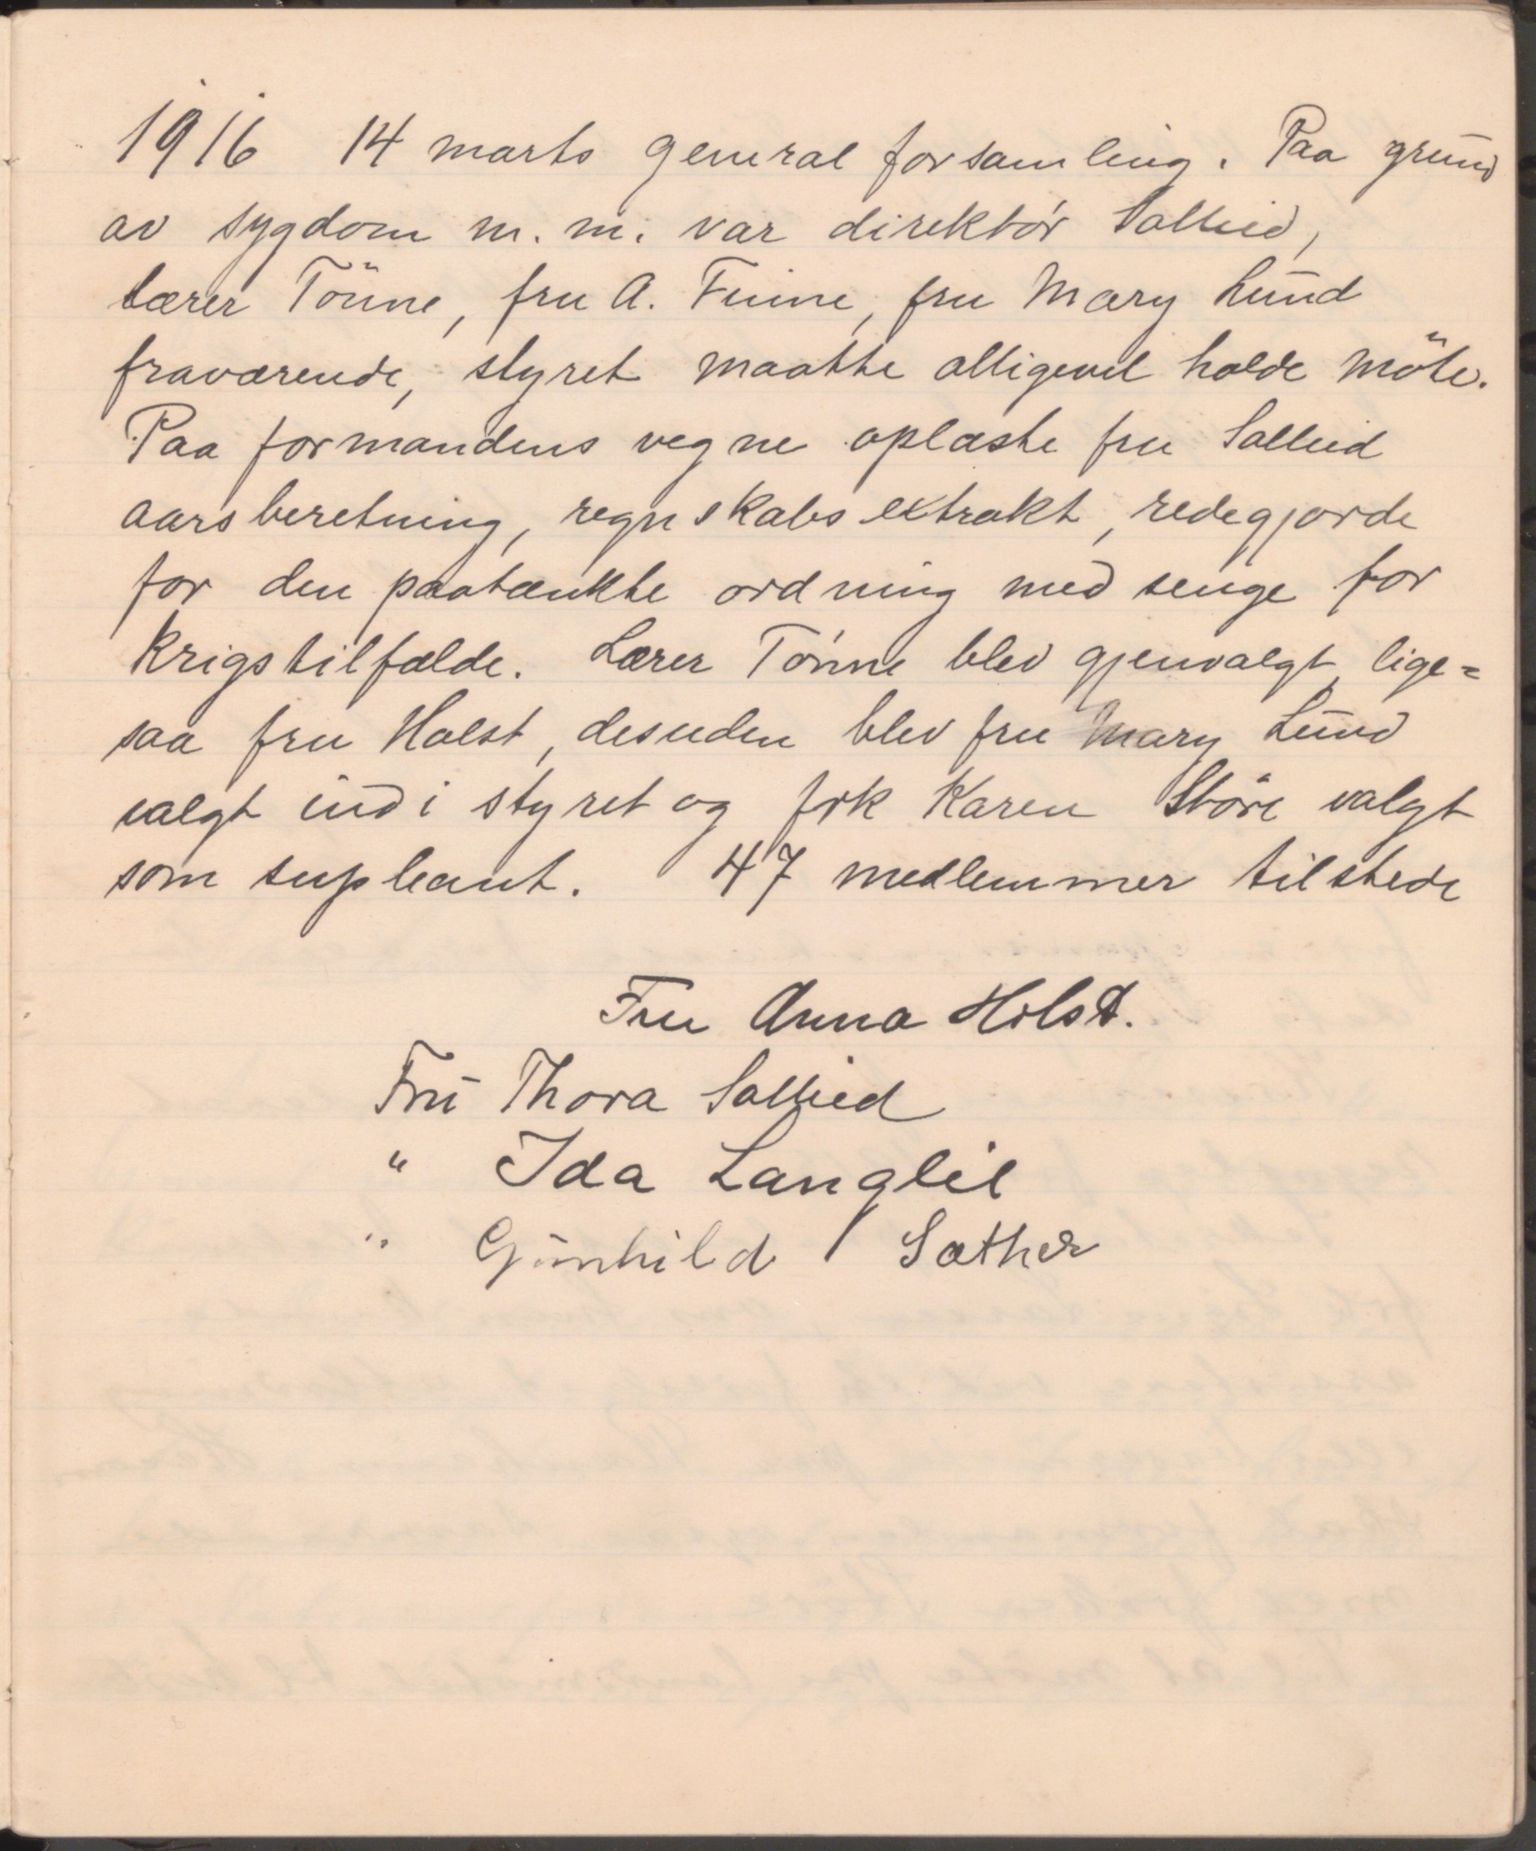 1916 14 marts general forsamling. Paa grund
av sygdom m. m. var direktör Solleid,
lærer Tönne, fru A. Finne, fru Mary Lund
fraværende, styret maatte alligevel holde möte.
Paa formandens vegne oplæste fru Solleid
aarsberetning, regnskabs extrakt, redegjorde
for den paatænkte ordning med senge for
krigstilfælde. Lærer Tönne blev gjenvalgt, lige=
saa fru Holst, desuden blev fru Mary Lund
valgt ind i styret og frk Karen Störe valgt
som supleant. 47 medlemmer tilstede
Fru Anna Holst.
Fru Thora Solleid
" Ida Langlie
" Gunhild Sæther